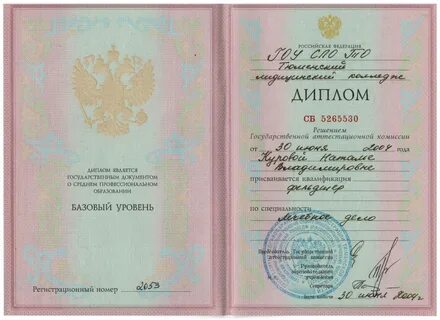 ДИПЛОМ ЯВЛЯЕТСЯ
ГОСУДАРСТВЕННЫМ ДОКУМЕНТОМ
О СРЕДНЕМ ПРОФЕССИОНАЛЬНОМ
ОБРАЗОВАНИИ
БАЗОВЫЙ УРОВЕНЬ
Регистрационный номер 2053
РОССИЙСКАЯ ФЕДЕРАЦИЯ
ГОУ СПО ТО
Тюменский
медицинский колледж
ДИПЛОМ
СБ 5265530
Решением
Государственной аттестационной комиссии
от 30 июня 2004 года
Куровой Наталье
Владимировне
присваивается квалификация
фельдшер
по специальности
лечебное дело
Председатель Государственной
аттестационной комиссии
Руководитель
образовательного
учреждения
Секретарь
30 июня 2004г